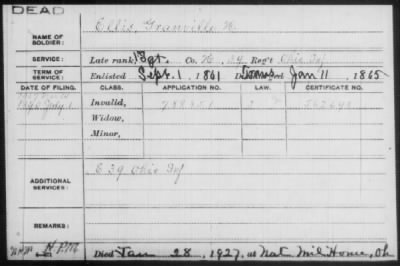 DEAD
NAME OF SOLDIER: Ellis, Granville
SERVICE: Late rank, Sgt. Co. 39 Reg't Ohio Inf
TERM OF SERVICE: Enlisted Sept. 1, 1861 Jan 11, 1865
DATE OF FILING. CLASS. APPLICATION NO. LAW. CERTIFICATE NO.
July 1 Invalid,
Widow,
Minor,
ADDITIONAL SERVICES: E 39 Ohio Inf
REMARKS:
Died Jan 28, 1927, at Nat Mil Home, Oh